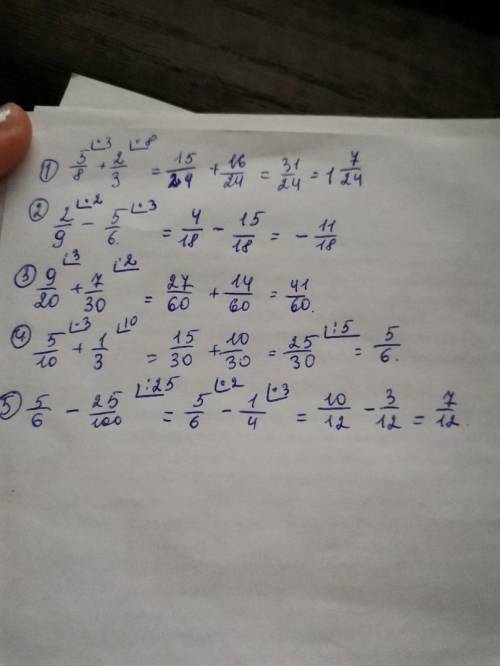 ① 5/8 ⌊·3 + 2/3 ⌊·8 = 15/24 + 16/24 = 31/24 = 1 7/24
② 2/9 ⌊·2 - 5/6. ⌊·3 = 4/18 - 15/18 = - 11/18
③ 9/20 ⌊3 + 7/30 ⌊·2 = 27/60 + 14/60 = 41/60.
④ 5/10 ⌊·3 + 1/3 ⌊10 = 15/30 + 10/30 = 25/30 ⌊:5 = 5/6.
⑤ 5/6 - 25/100 ⌊:25 = 5/6 ⌊·2 - 1/4 ⌊·3 = 10/12 - 3/12 = 7/12.